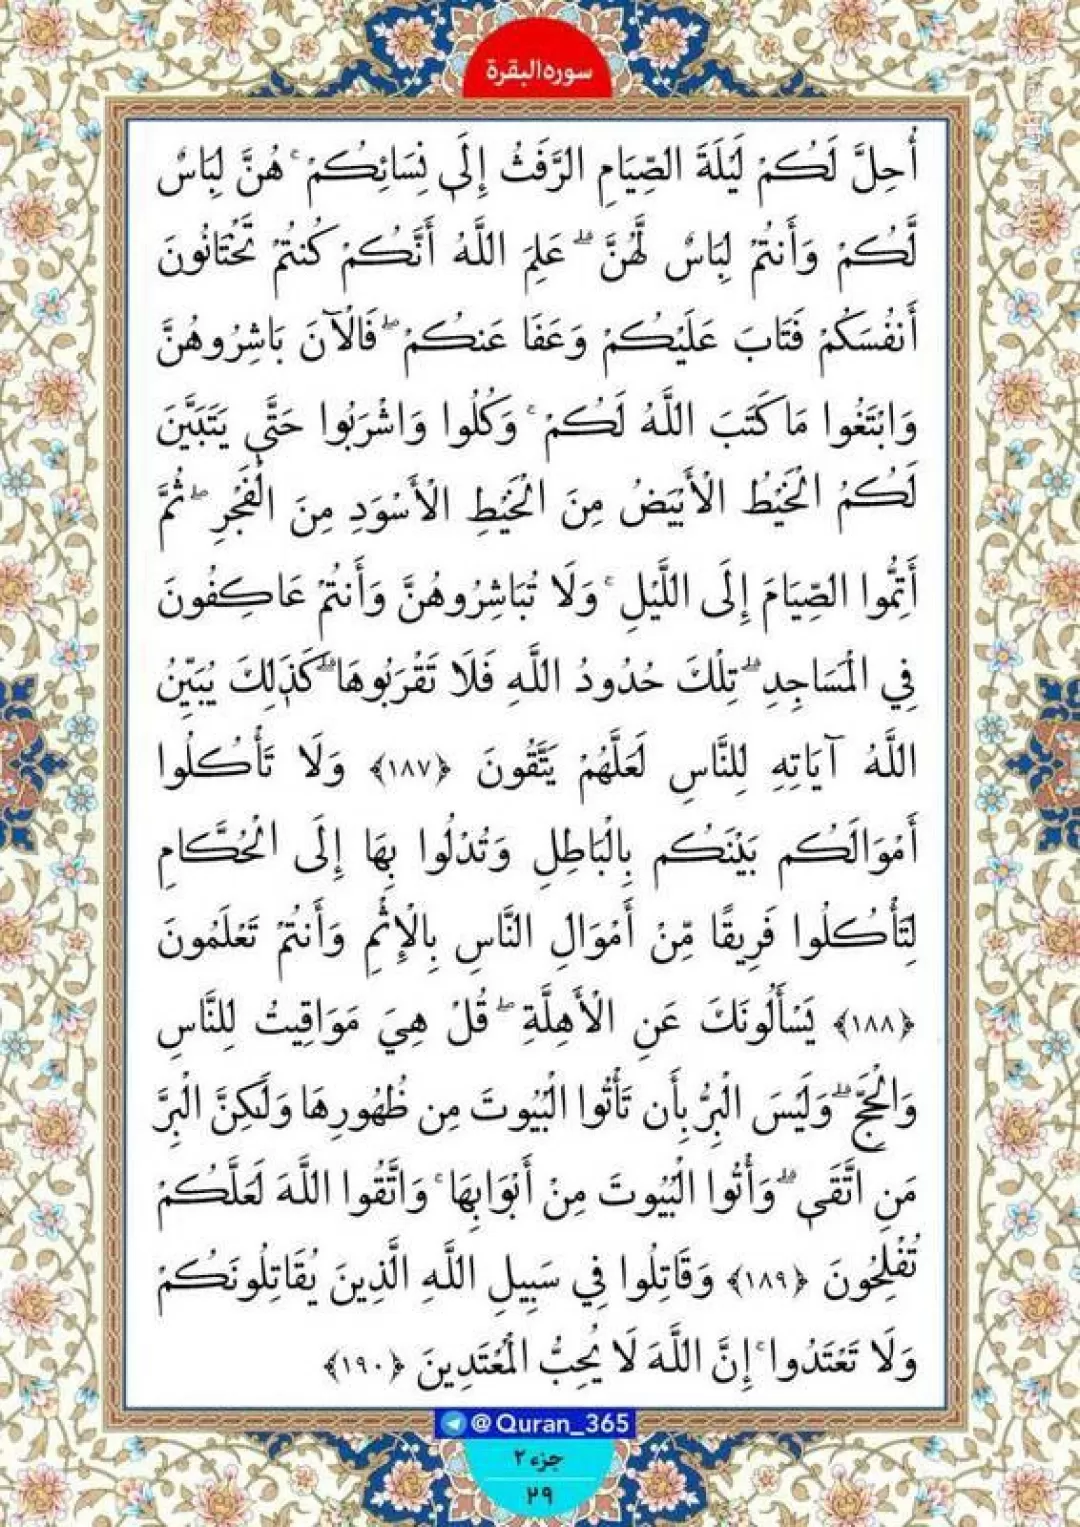 سوره البقرة
أُحِلَّ لَكُمْ لَيْلَةَ الصِّيَامِ الرَّفَثُ إِلَىٰ نِسَائِكُمْ ۚ هُنَّ لِبَاسٌ
لَّكُمْ وَأَنتُمْ لِبَاسٌ لَّهُنَّ ۗ عَلِمَ اللَّهُ أَنَّكُمْ كُنتُمْ تَخْتَانُونَ
أَنفُسَكُمْ فَتَابَ عَلَيْكُمْ وَعَفَا عَنكُمْ ۖ فَالْآنَ بَاشِرُوهُنَّ
وَابْتَغُوا مَا كَتَبَ اللَّهُ لَكُمْ ۚ وَكُلُوا وَاشْرَبُوا حَتَّىٰ يَتَبَيَّنَ
لَكُمُ الْخَيْطُ الْأَبْيَضُ مِنَ الْخَيْطِ الْأَسْوَدِ مِنَ الْفَجْرِ ۖ ثُمَّ
أَتِمُّوا الصِّيَامَ إِلَى اللَّيْلِ ۚ وَلَا تُبَاشِرُوهُنَّ وَأَنتُمْ عَاكِفُونَ
فِي الْمَسَاجِدِ ۗ تِلْكَ حُدُودُ اللَّهِ فَلَا تَقْرَبُوهَا ۗ كَذَٰلِكَ يُبَيِّنُ
اللَّهُ آيَاتِهِ لِلنَّاسِ لَعَلَّهُمْ يَتَّقُونَ ﴿١٨٧﴾ وَلَا تَأْكُلُوا
أَمْوَالَكُم بَيْنَكُم بِالْبَاطِلِ وَتُدْلُوا بِهَا إِلَى الْحُكَّامِ
لِتَأْكُلُوا فَرِيقًا مِّنْ أَمْوَالِ النَّاسِ بِالْإِثْمِ وَأَنتُمْ تَعْلَمُونَ
﴿١٨٨﴾ يَسْأَلُونَكَ عَنِ الْأَهِلَّةِ ۖ قُلْ هِيَ مَوَاقِيتُ لِلنَّاسِ
وَالْحَجِّ ۗ وَلَيْسَ الْبِرُّ بِأَن تَأْتُوا الْبُيُوتَ مِن ظُهُورِهَا وَلَٰكِنَّ الْبِرَّ
مَنِ اتَّقَىٰ ۗ وَأْتُوا الْبُيُوتَ مِنْ أَبْوَابِهَا ۚ وَاتَّقُوا اللَّهَ لَعَلَّكُمْ
تُفْلِحُونَ ﴿١٨٩﴾ وَقَاتِلُوا فِي سَبِيلِ اللَّهِ الَّذِينَ يُقَاتِلُونَكُمْ
وَلَا تَعْتَدُوا ۚ إِنَّ اللَّهَ لَا يُحِبُّ الْمُعْتَدِينَ ﴿١٩٠﴾
@Quran_365
جزء ٢
٢٩